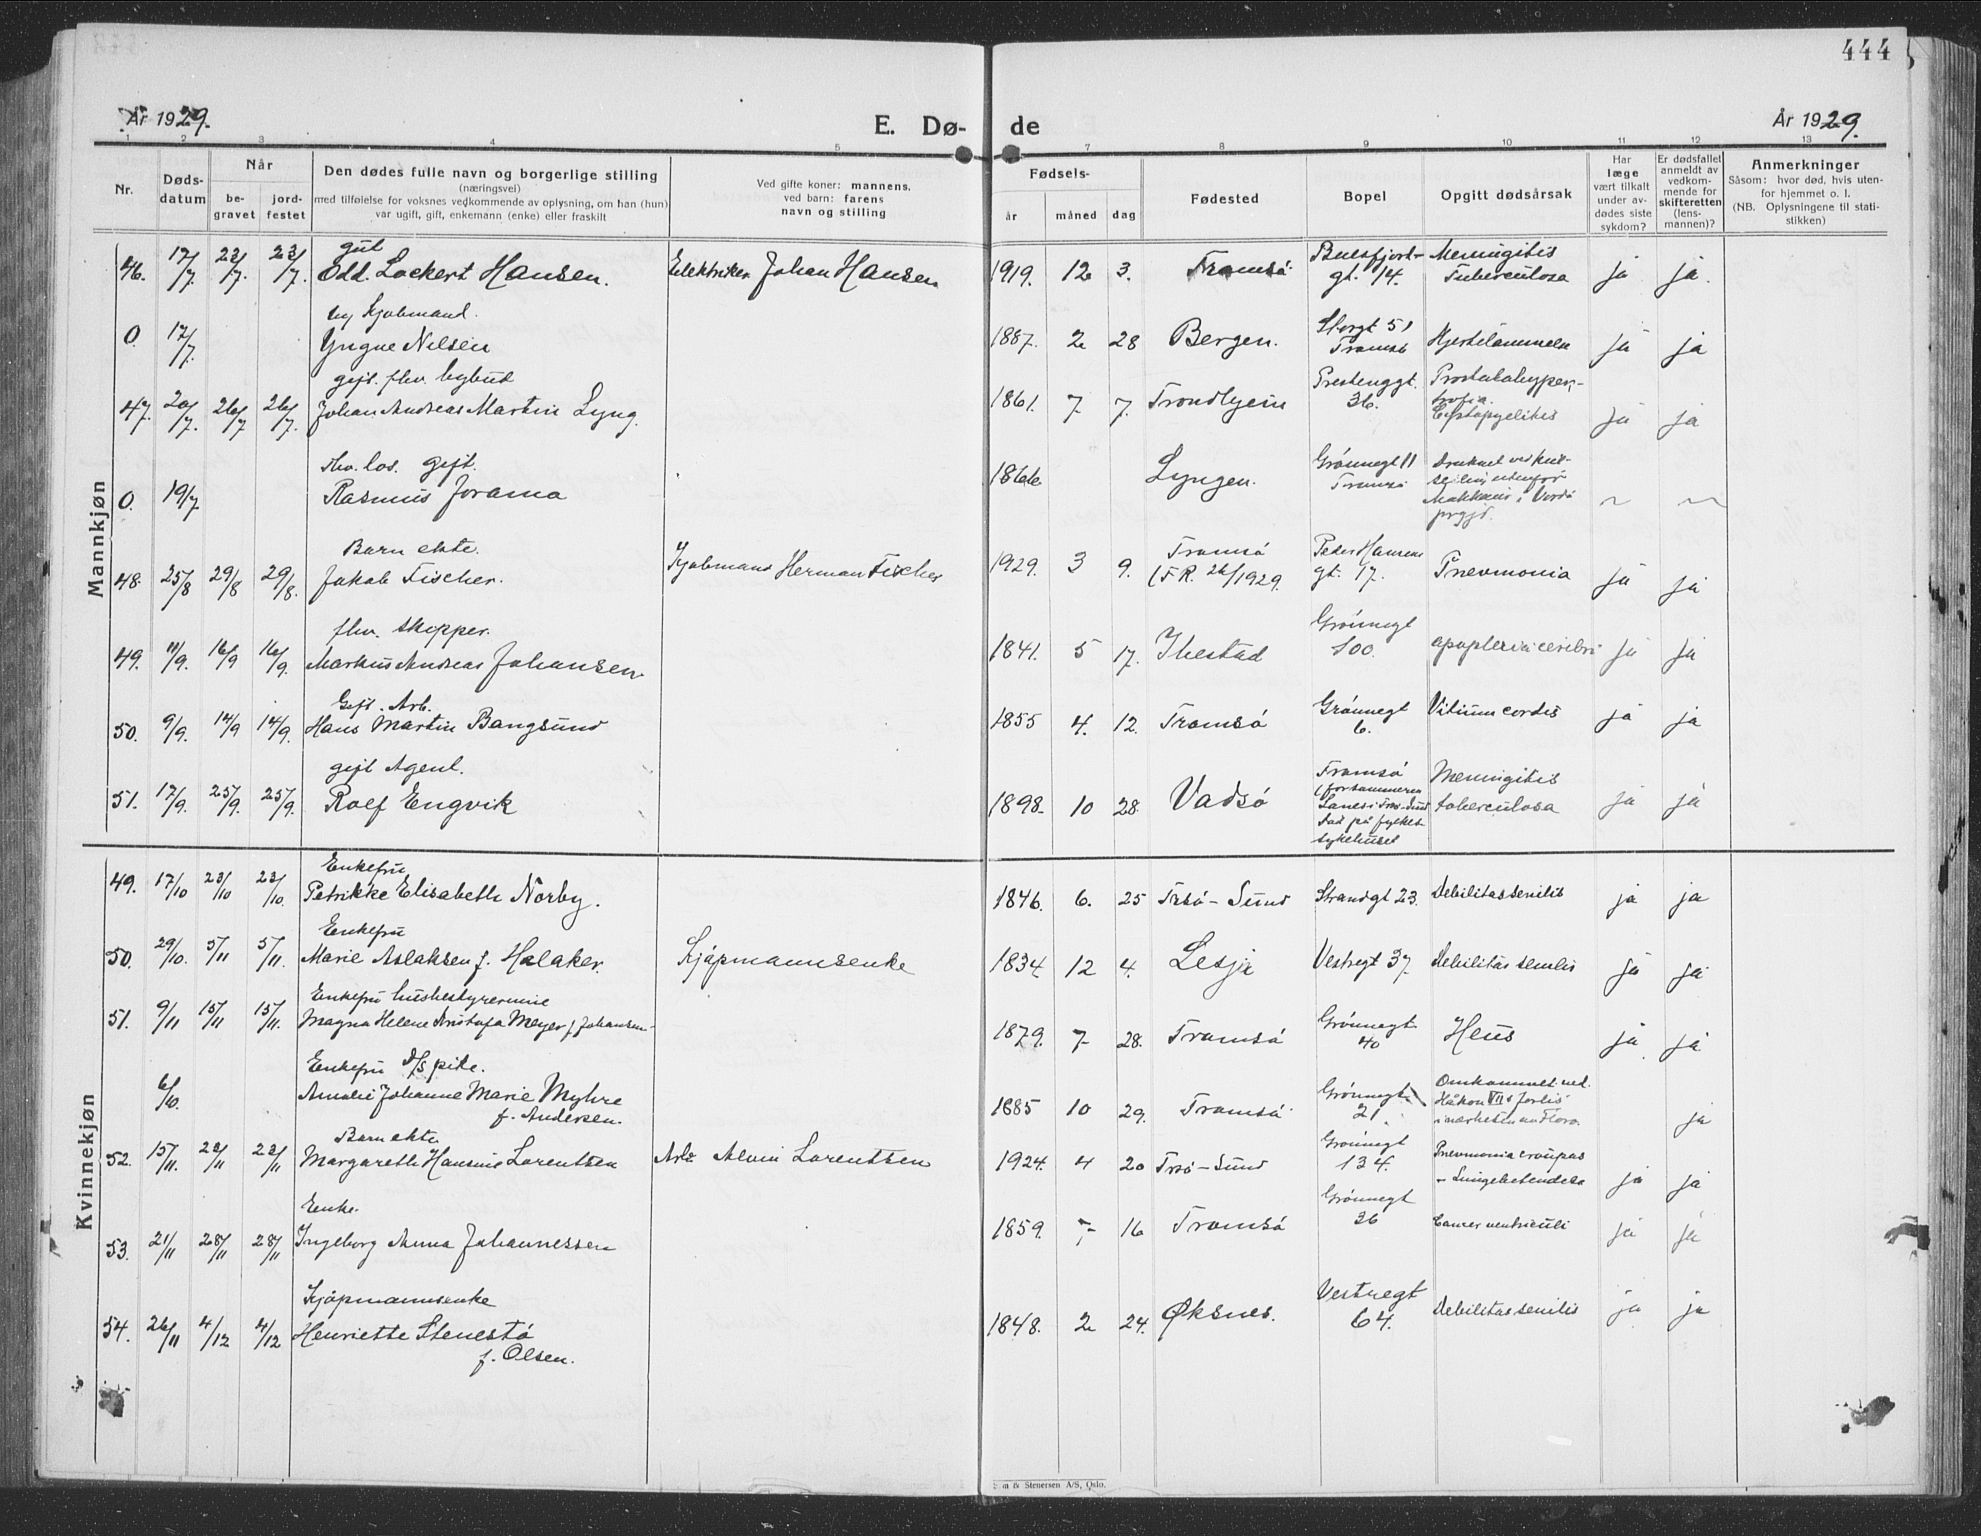 444
År 1929.
E. Dø- de
År 1929.
1 2 3 4 5 7 8 9 10 11 12 13
Nr.
Døds-
datum
Når
be-
gravet
jord-
festet
Den dødes fulle navn og borgerlige stilling
(næringsvei)
med tilføielse for voksnes vedkommende av oplysning, om han (hun)
var ugift, gift, enkemann (enke) eller fraskilt
Ved gifte koner: mannens,
ved barn: farens
navn og stilling
Fødsels-
år måned dag
Fødested
Bopel
Opgitt dødsårsak
Har
læge
vært tilkalt
under av-
dødes siste
sykdom?
Er dødsfallet
anmeldt av
vedkom-
mende for
skifteretten
(lens-
mannen)?
Anmerkninger
Såsom: hvor død, hvis uten-
for hjemmet o. l.
(NB. Oplysningene til stati-
stikken)
Mannkjøn
gut
46. 17/7. 23/7. 23/7. Odd. Lockert Hansen. Elektriker Johan Hansen 1919. 12 3. Tromsö. gt. 14. Meningitis
Tuberculosa ja ja.
Kjøbmand.
0. 17/7. Yngve Nilsen 1887. 2 28 Bergen. Storgt 51
Tromsö Hjertelammelse ja ja
gift. fhv. bybud
47. 20/7. 26/7 26/7. Johan Andreas Martin Lyng. 1861. 7. 7. Trondhjem Prestenggt.
36. Prostatahyper-
trofia.
Cystopyelitis ja ja
fhv. los. gift.
0. 19/7 Rasmus Jorama 1866. Lyngen. Grönnegt 11
Tromsö Druknet ved
i Vardö
prgjd.
Barn ekte.
48. 25/8 29/8 29/8. Jakob Fischer. Kjøbmand Herman Fischer 1929. 3 9. Tromsö
(F R. 26/1929. Peder Hansens
gt. 17. Pnevmonia ja ja
fhv. skipper.
49. 11/9. 16/9 16/9. Markus Andreas Johansen 1841. 5 17. Ibestad Grönnegt
100. apoplexia cerebri ja ja
Gift. Arb.
50. 9/9. 14/9 14/9. Hans Martin Bangsund 1855 4. 12. Tromsö Grönnegt
6. Vitium cordis ja ja
gift Agent.
51. 17/9. 25/9. 25/9. Rolf Engvik 1898. 10 28. Vadsö Tromsö
død på fylkes-
sykehuset Meningitis
tuberculosa ja ja
Kvinnekjøn
Enkefru
49. 17/10 23/10 23/10. Petrikke Elisabeth Norby. 1846. 6. 25 Trsö-Sund Strandgt 23. Debilitas senilis ja ja
Enkefru
50. 29/10. 5/11 5/11. Marie Aslaksen f. Holaker. Kjöpmannsenke 1834. 12 4. Lesja Vestregt 37. Debilitas senilis ja ja
Enkefru husbestyrerinne
51. 9/11 15/11 15/11. Magna Helene Meyer f. Johansen 1879. 7- 28. Tromsö Grönnegt
40 Ileus ja ja
Enkefru
6/10. Amalie Johanne Marie Myhre
f. Andersen. 1885 10 29. Tromsö Grönnegt
21. Omkommet ved.
Håkon VII's forlis
i nærheten av Florø. ja
Barn ekte
52. 15/11. 22/11 22/11 Margareth Hansine Lorentsen Arb. Alvin Lorentsen 1924. 4 20 Trsö-Sund Grönnegt
134. Pnevmonia croupas
- Lungebetendelse ja ja
Enke.
53. 21/11 28/11 28/11 Ingeborg Anna Johannessen 1859. 7- 16 Tromsö Grönnegt
36 Cancer ventriculi ja ja
Kjöpmannsenke
54. 26/11 4/12 4/12 Henriette Stenestö
f. Olsen. 1848. 2 24. Øksnes. Vestregt
64. Debilitas senilis ja ja
& Stenersen A/S, Oslo.